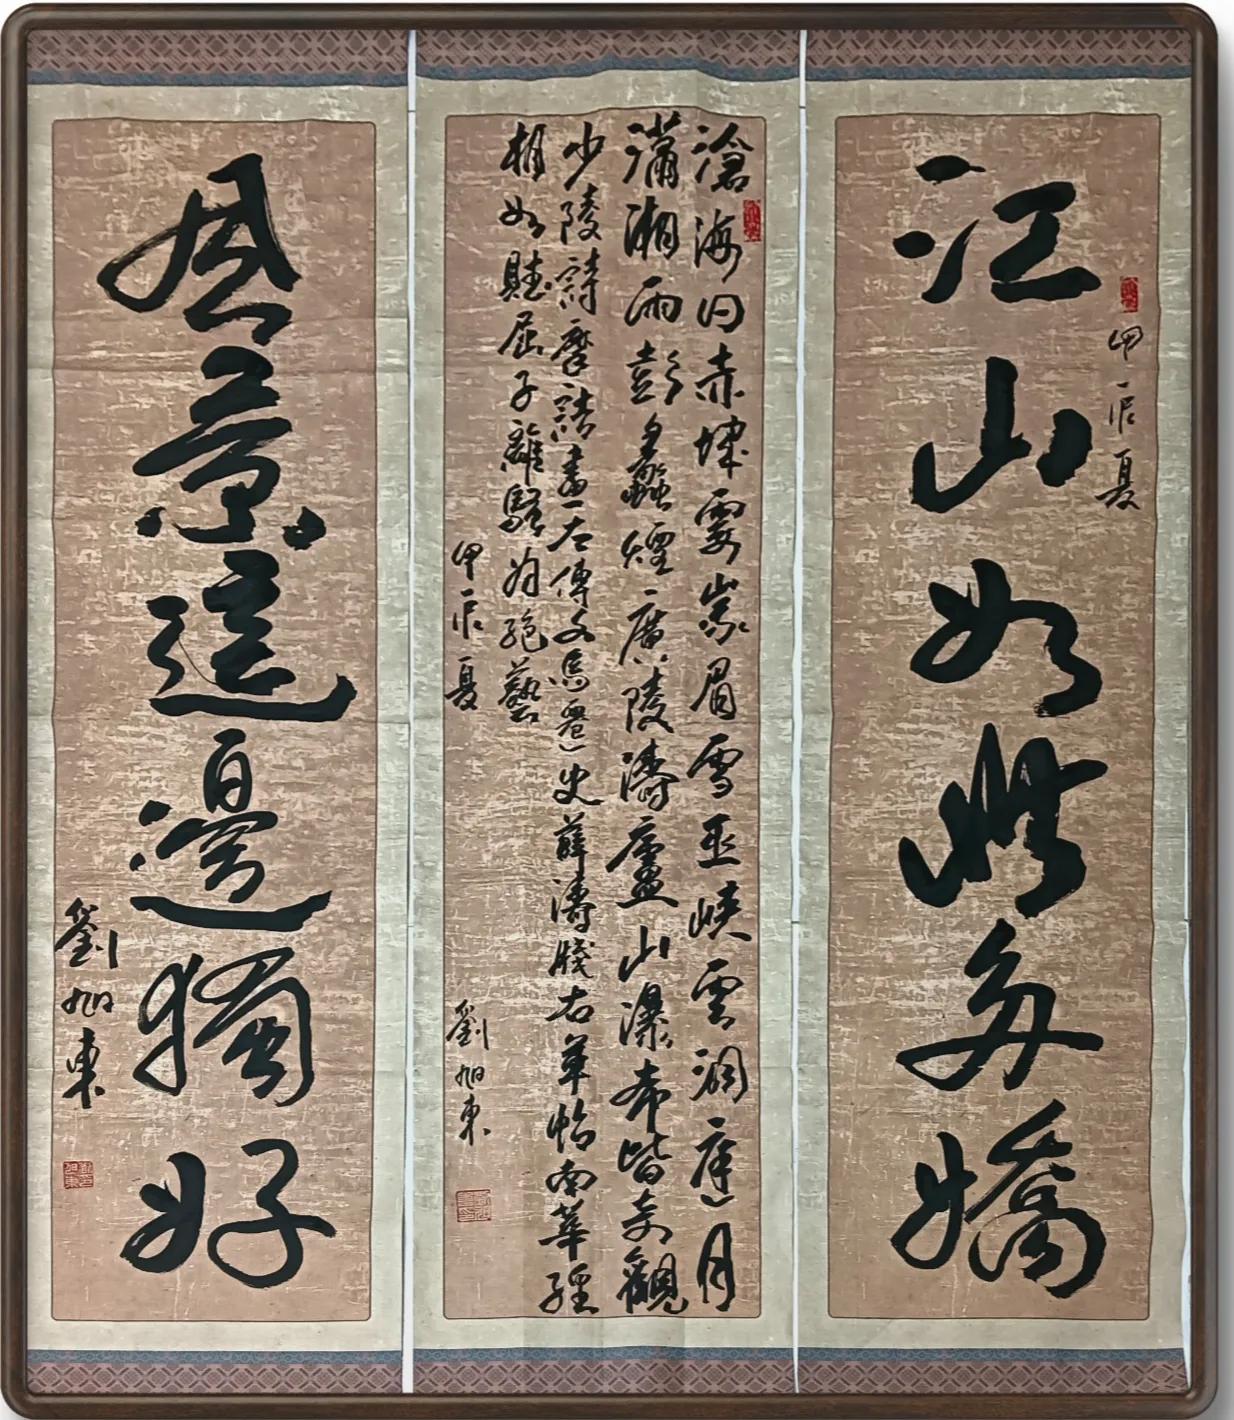 甲辰夏
江山如此多嬌
滄海日赤城霞峩眉雪巫峽雲洞庭月
瀟湘雨彭蠡煙廣陵濤廬山瀑布皆奇觀
少陵詩摩詰畫左傳文馬遷史薛濤牋右軍帖南華經
相如賦屈子離騷為絕藝
甲辰夏 劉旭東
風景這邊獨好
劉旭東